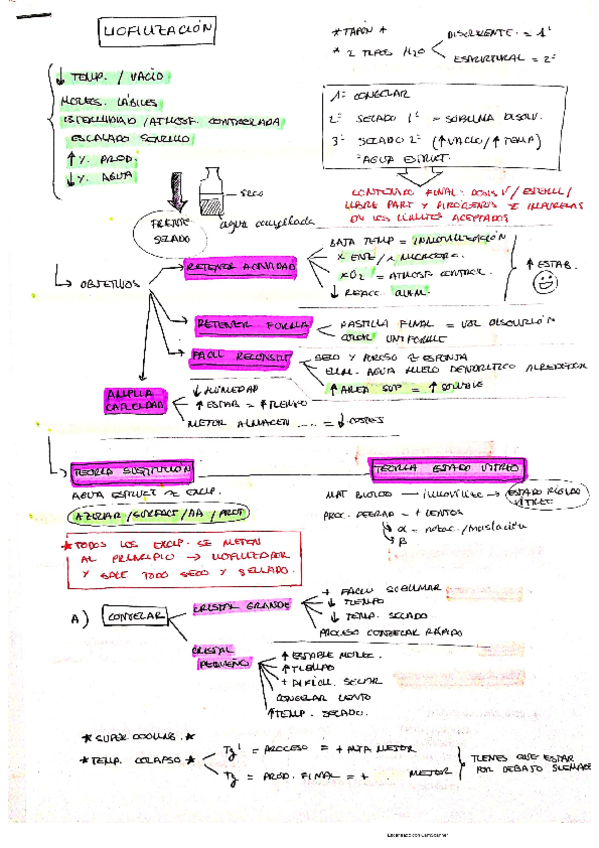 LIOFILIZACIÓN
* TAPÓN *
* 2 TIPOS H2O
DISOLVENTE = 1º
ESTRUCTURAL = 2º
↓ TEMP. / VACÍO
MOLEC. LÁBILES
ESTERILIDAD / ATMOSF. CONTROLADA
ESCALADO SENCILLO
↑ %. PROD.
↓ %. AGUA
1º CONGELAR
2º SECADO 1º = SUBLIMA DISOLV.
3º SECADO 2º (↑ VACÍO / ↑ TEMP)
= AGUA ESTRUCT.
CONTENIDO FINAL: DOSIS V / ESTÉRIL /
LIBRE PART Y PIRÓGENOS E IMPUREZAS
EN LOS LÍMITES ACEPTADOS
SECO
agua congelada
FRENTE
SECADO
↳ OBJETIVOS
RETENER ACTIVIDAD
BAJA TEMP = INMOVILIZACIÓN
X ENZ /
XO2 = ATMOSF CONTROL.
↓ REACC. QUÍM.
↑ ESTAB.
RETENER FORMA
PASTILLA FINAL = VOL DISOLUCIÓN
COLOR UNIFORME
FÁCIL RECONSTIT
SECO Y POROSO ≈ ESPONJA
ELIM. AGUA HUECO DENDRÍTICO ALREDEDOR
↑ ÁREA SUP = ↑ SOLUBLE
AMPLIA
CAPACIDAD
↓ HUMEDAD
↑ ESTAB = ↑ TIEMPO
MEJOR ALMACEN .... = ↓ COSTES
TEORÍA SUSTITUCIÓN
AGUA ESTRUCT ≈ EXCIP.
AZÚCAR / SURFACT / AA / PROT
TEORÍA ESTADO VÍTREO
MAT BLOQ → inmoviliza → ESTADO RÍGIDO
VÍTREO
PROC. DEGRAD = + LENTOS
α = rotac. / traslación
β
* TODOS LOS EXCIP. SE METEN
AL PRINCIPIO → LIOFILIZADOR
Y SALE TODO SECO Y SELLADO.
A) CONGELAR
CRISTAL GRANDE
+ FÁCIL SUBLIMAR
↓ TIEMPO
↓ TEMP. SECADO
PROCESO CONGELAR RÁPIDO
CRISTAL
PEQUEÑO
↑ ESTABLE MOLEC.
↑ TIEMPO
+ DIFÍCIL. SECAR
CONGELAR LENTO
↑ TEMP. SECADO.
* SUPER COOLING. *
* TEMP. COLAPSO *
Tg' = PROCESO = + ALTA MEJOR
Tg = PROD. FINAL = + MEJOR
TIENES QUE ESTAR
POR DEBAJO SIEMPRE
Escaneado con CamScanner